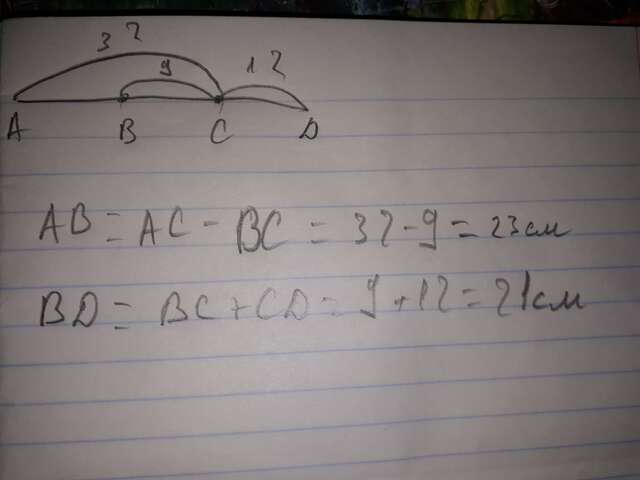 32
9 12
A B C D
AB = AC - BC = 32 - 9 = 23 см
BD = BC + CD = 9 + 12 = 21 см